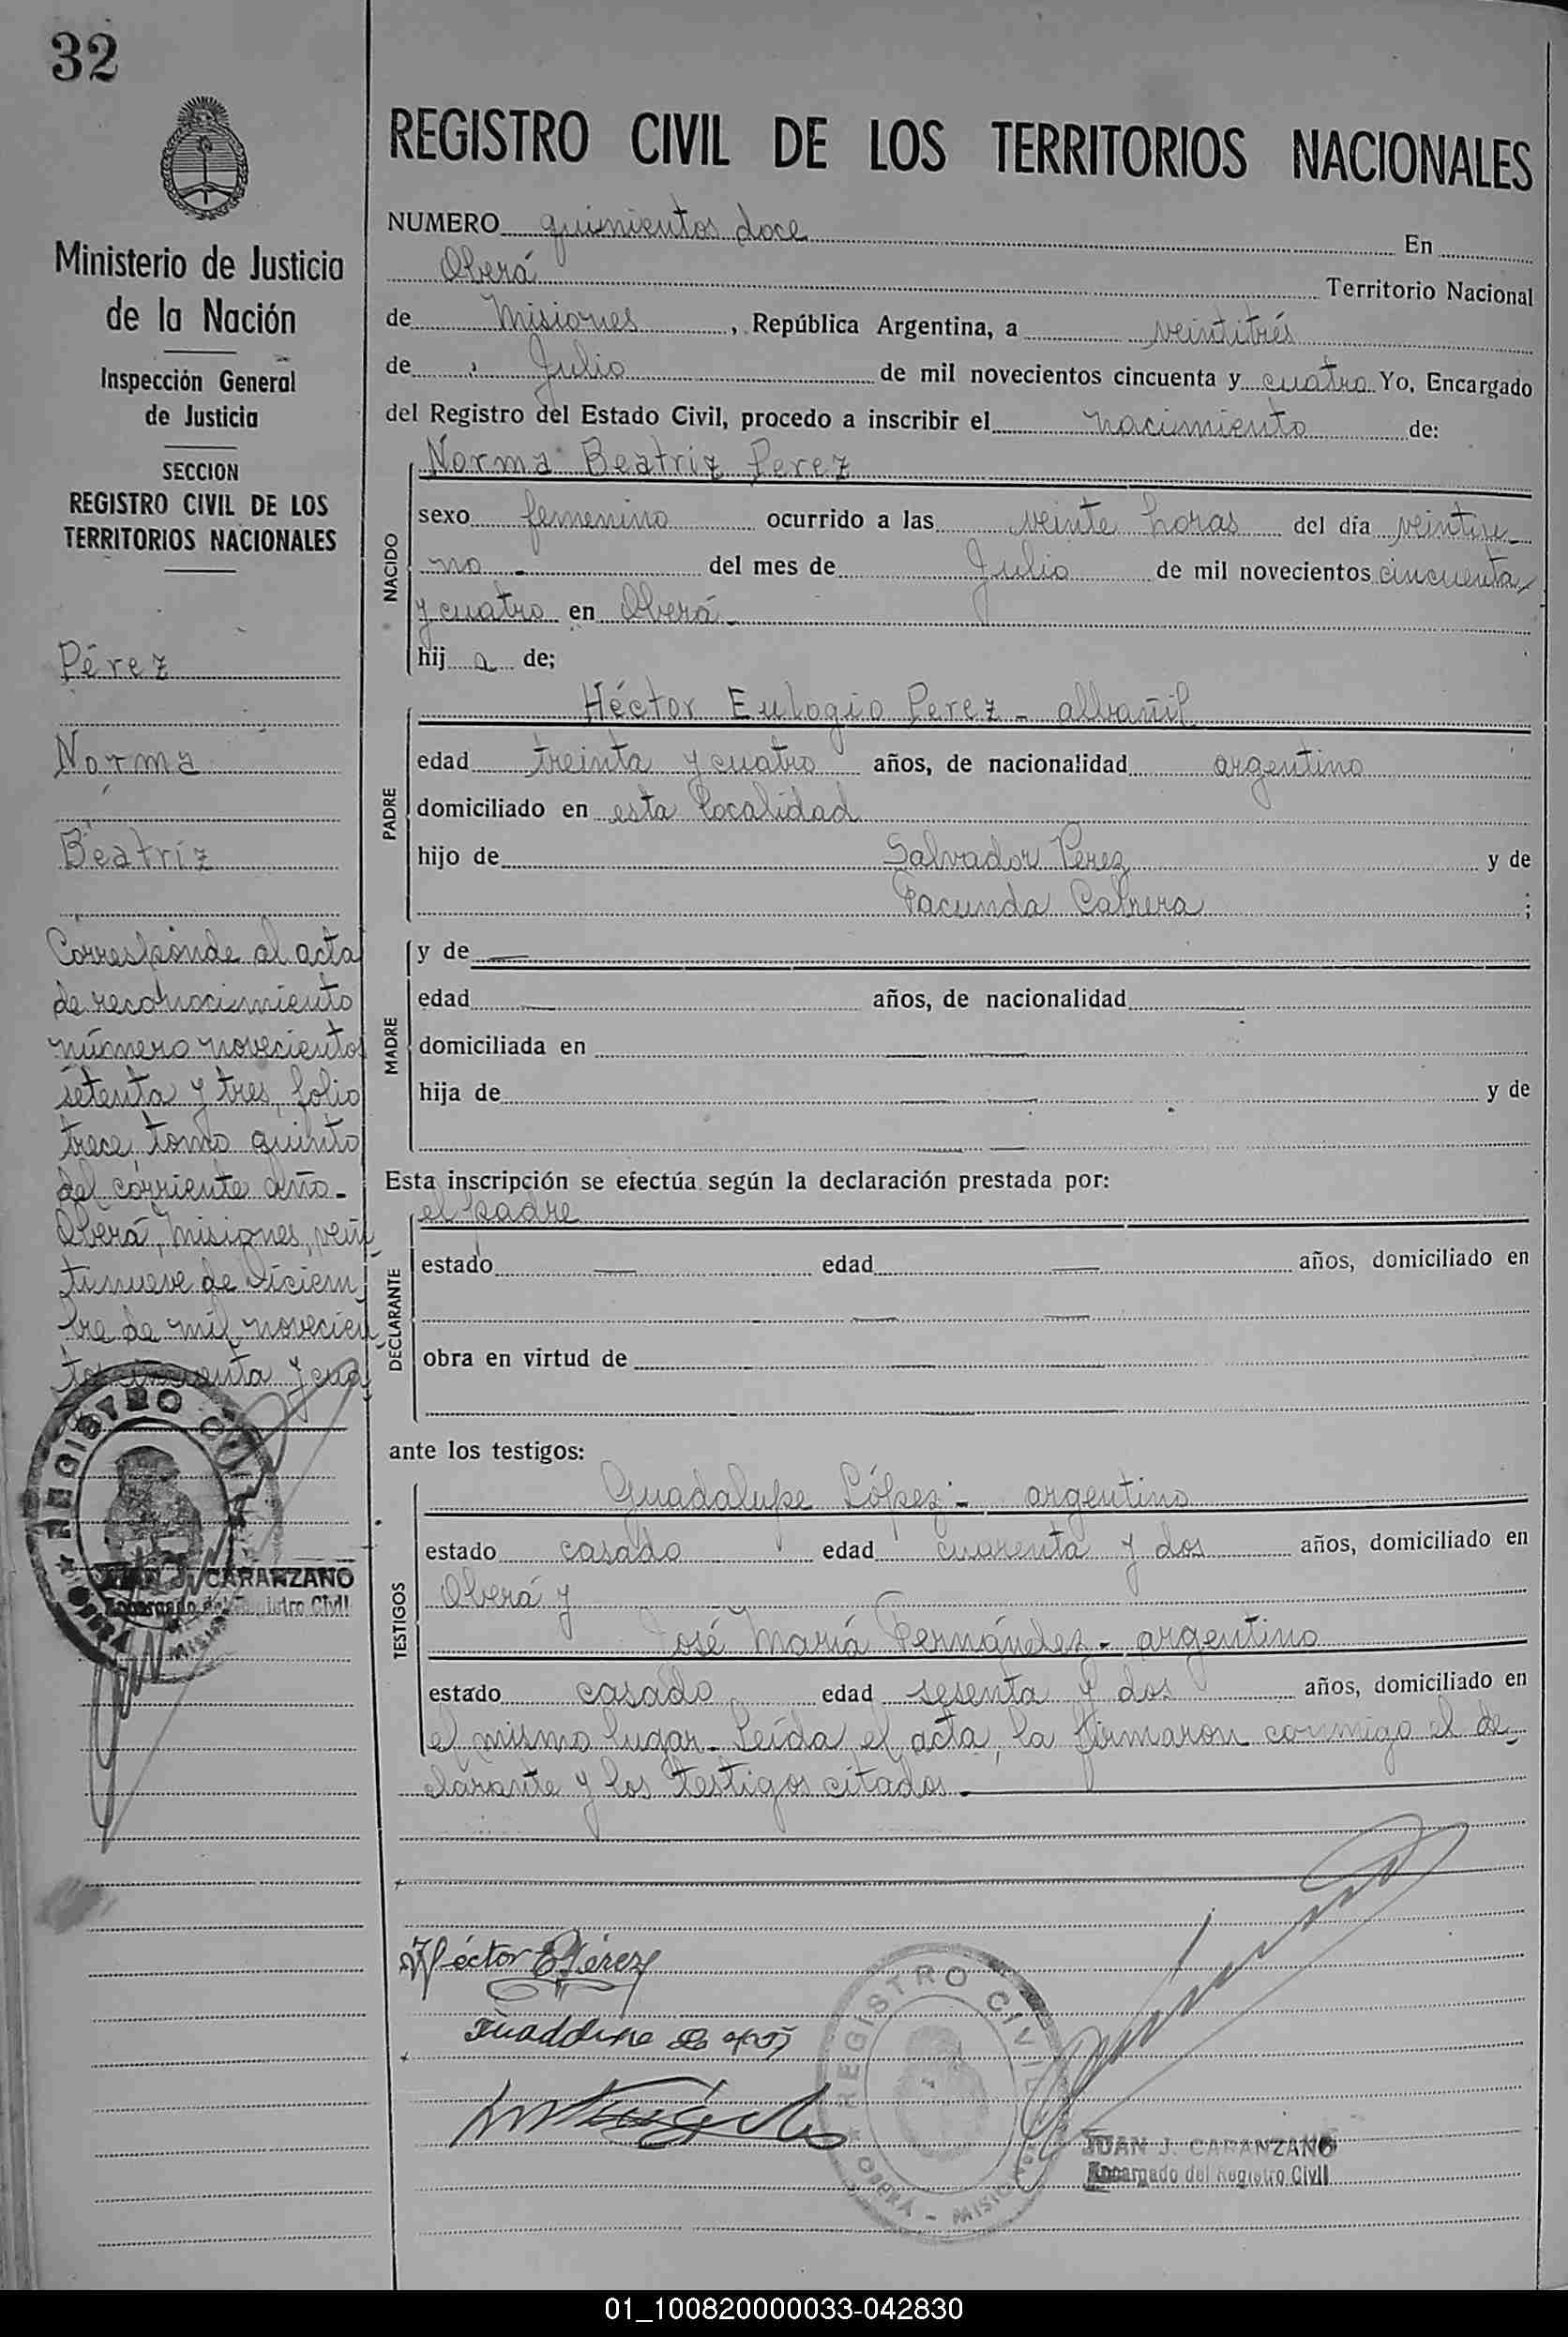 32
REGISTRO CIVIL DE LOS TERRITORIOS NACIONALES
Ministerio de Justicia
de la Nación
Inspección General
de Justicia
SECCION
REGISTRO CIVIL DE LOS
TERRITORIOS NACIONALES
Pérez
Norma
Beatríz
Corresponde al acta
de reconocimiento
número novecientos
setenta y tres, folio
trece, tomo quinto
del corriente año.-
Oberá, Misiones, vein-
tinueve de Diciem
bre de mil novecien
tos cincuenta y cua
REGISTRO CIVIL
OBERA MISIO
JUAN J. CARANZANO
Encargado del Registro Civil
NUMERO quinientos doce En
Oberá Territorio Nacional
de Misiones, República Argentina, a veintitrés
de Julio de mil novecientos cincuenta y cuatro Yo, Encargado
del Registro del Estado Civil, procedo a inscribir el nacimiento de:
NACIDO
Norma Beatriz Perez
sexo femenino ocurrido a las veinte horas del día veintiu-
no - del mes de Julio de mil novecientos cincuenta
y cuatro en Oberá.-
hij a de;
PADRE
Héctor Eulogio Perez - albañil
edad treinta y cuatro años, de nacionalidad argentino
domiciliado en esta localidad
hijo de Salvador Perez y de
Facunda Cabrera ;
MADRE
y de —
edad — años, de nacionalidad
domiciliada en — —
hija de — — y de
—
Esta inscripción se efectúa según la declaración prestada por:
DECLARANTE
el padre
estado — edad — años, domiciliado en
— —
obra en virtud de — —
ante los testigos:
TESTIGOS
Guadalupe López - argentino
estado casado edad cuarenta y dos años, domiciliado en
Oberá y
José María Fernández - argentino
estado casado edad sesenta y dos años, domiciliado en
el mismo lugar. Leída el acta, la firmaron conmigo el de-
clarante y los testigos citados.-
Héctor E Pérez
REGISTRO CIVIL
OBERA - MISIO
JUAN J. CARANZANO
Encargado del Registro Civil
01_100820000033-042830